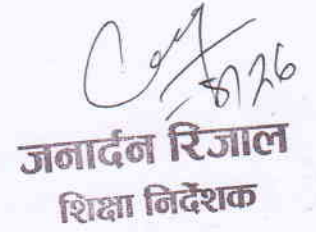 जनार्दन रिजाल
शिक्षा निर्देशक